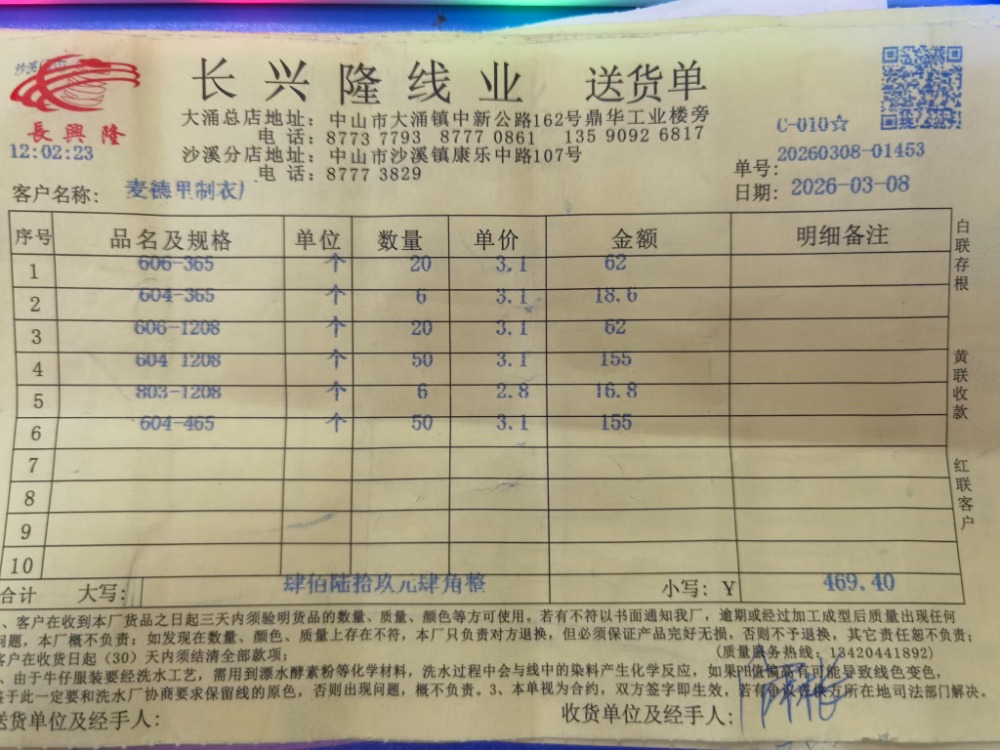 长兴隆线业 送货单
長興隆
大涌总店地址：中山市大涌镇中新公路162号鼎华工业楼旁
电 话：8773 7793 8777 0861 135 9092 6817
C-010☆
沙溪分店地址：中山市沙溪镇康乐中路107号
12:02:23
电 话：8777 3829
单号：20260308-01453
客户名称：麦德甲制衣厂
日期：2026-03-08
序号 品名及规格 单位 数量 单价 金额 明细备注
1 606-365 个 20 3.1 62
2 604-365 个 6 3.1 18.6
3 606-1208 个 20 3.1 62
4 604-1208 个 50 3.1 155
5 803-1208 个 6 2.8 16.8
6 604-465 个 50 3.1 155
7
8
9
10
白联存根
黄联收款
红联客户
合计 大写：肆佰陆拾玖元肆角整 小写：¥ 469.40
、客户在收到本厂货品之日起三天内须验明货品的数量、质量、颜色等方可使用。若有不符以书面通知我厂，逾期或经过加工成型后质量出现任何
问题，本厂概不负责；如发现在数量、颜色、质量上存在不符，本厂只负责对方退换，但必须保证产品完好无损，否则不予退换，其它责任恕不负责；
客户在收货日起（30）天内须结清全部款项； (质量服务热线：13420441892)
、由于牛仔服装要经洗水工艺，需用到漂水酵素粉等化学材料，洗水过程中会与线中的染料产生化学反应，如果PH值偏高有可能导致线色变色，
鉴于此一定要和洗水厂协商要求保留线的原色，否则出现问题，概不负责。3、本单视为合约，双方签字即生效，若有争议在供方所在地司法部门解决。
送货单位及经手人： 收货单位及经手人：